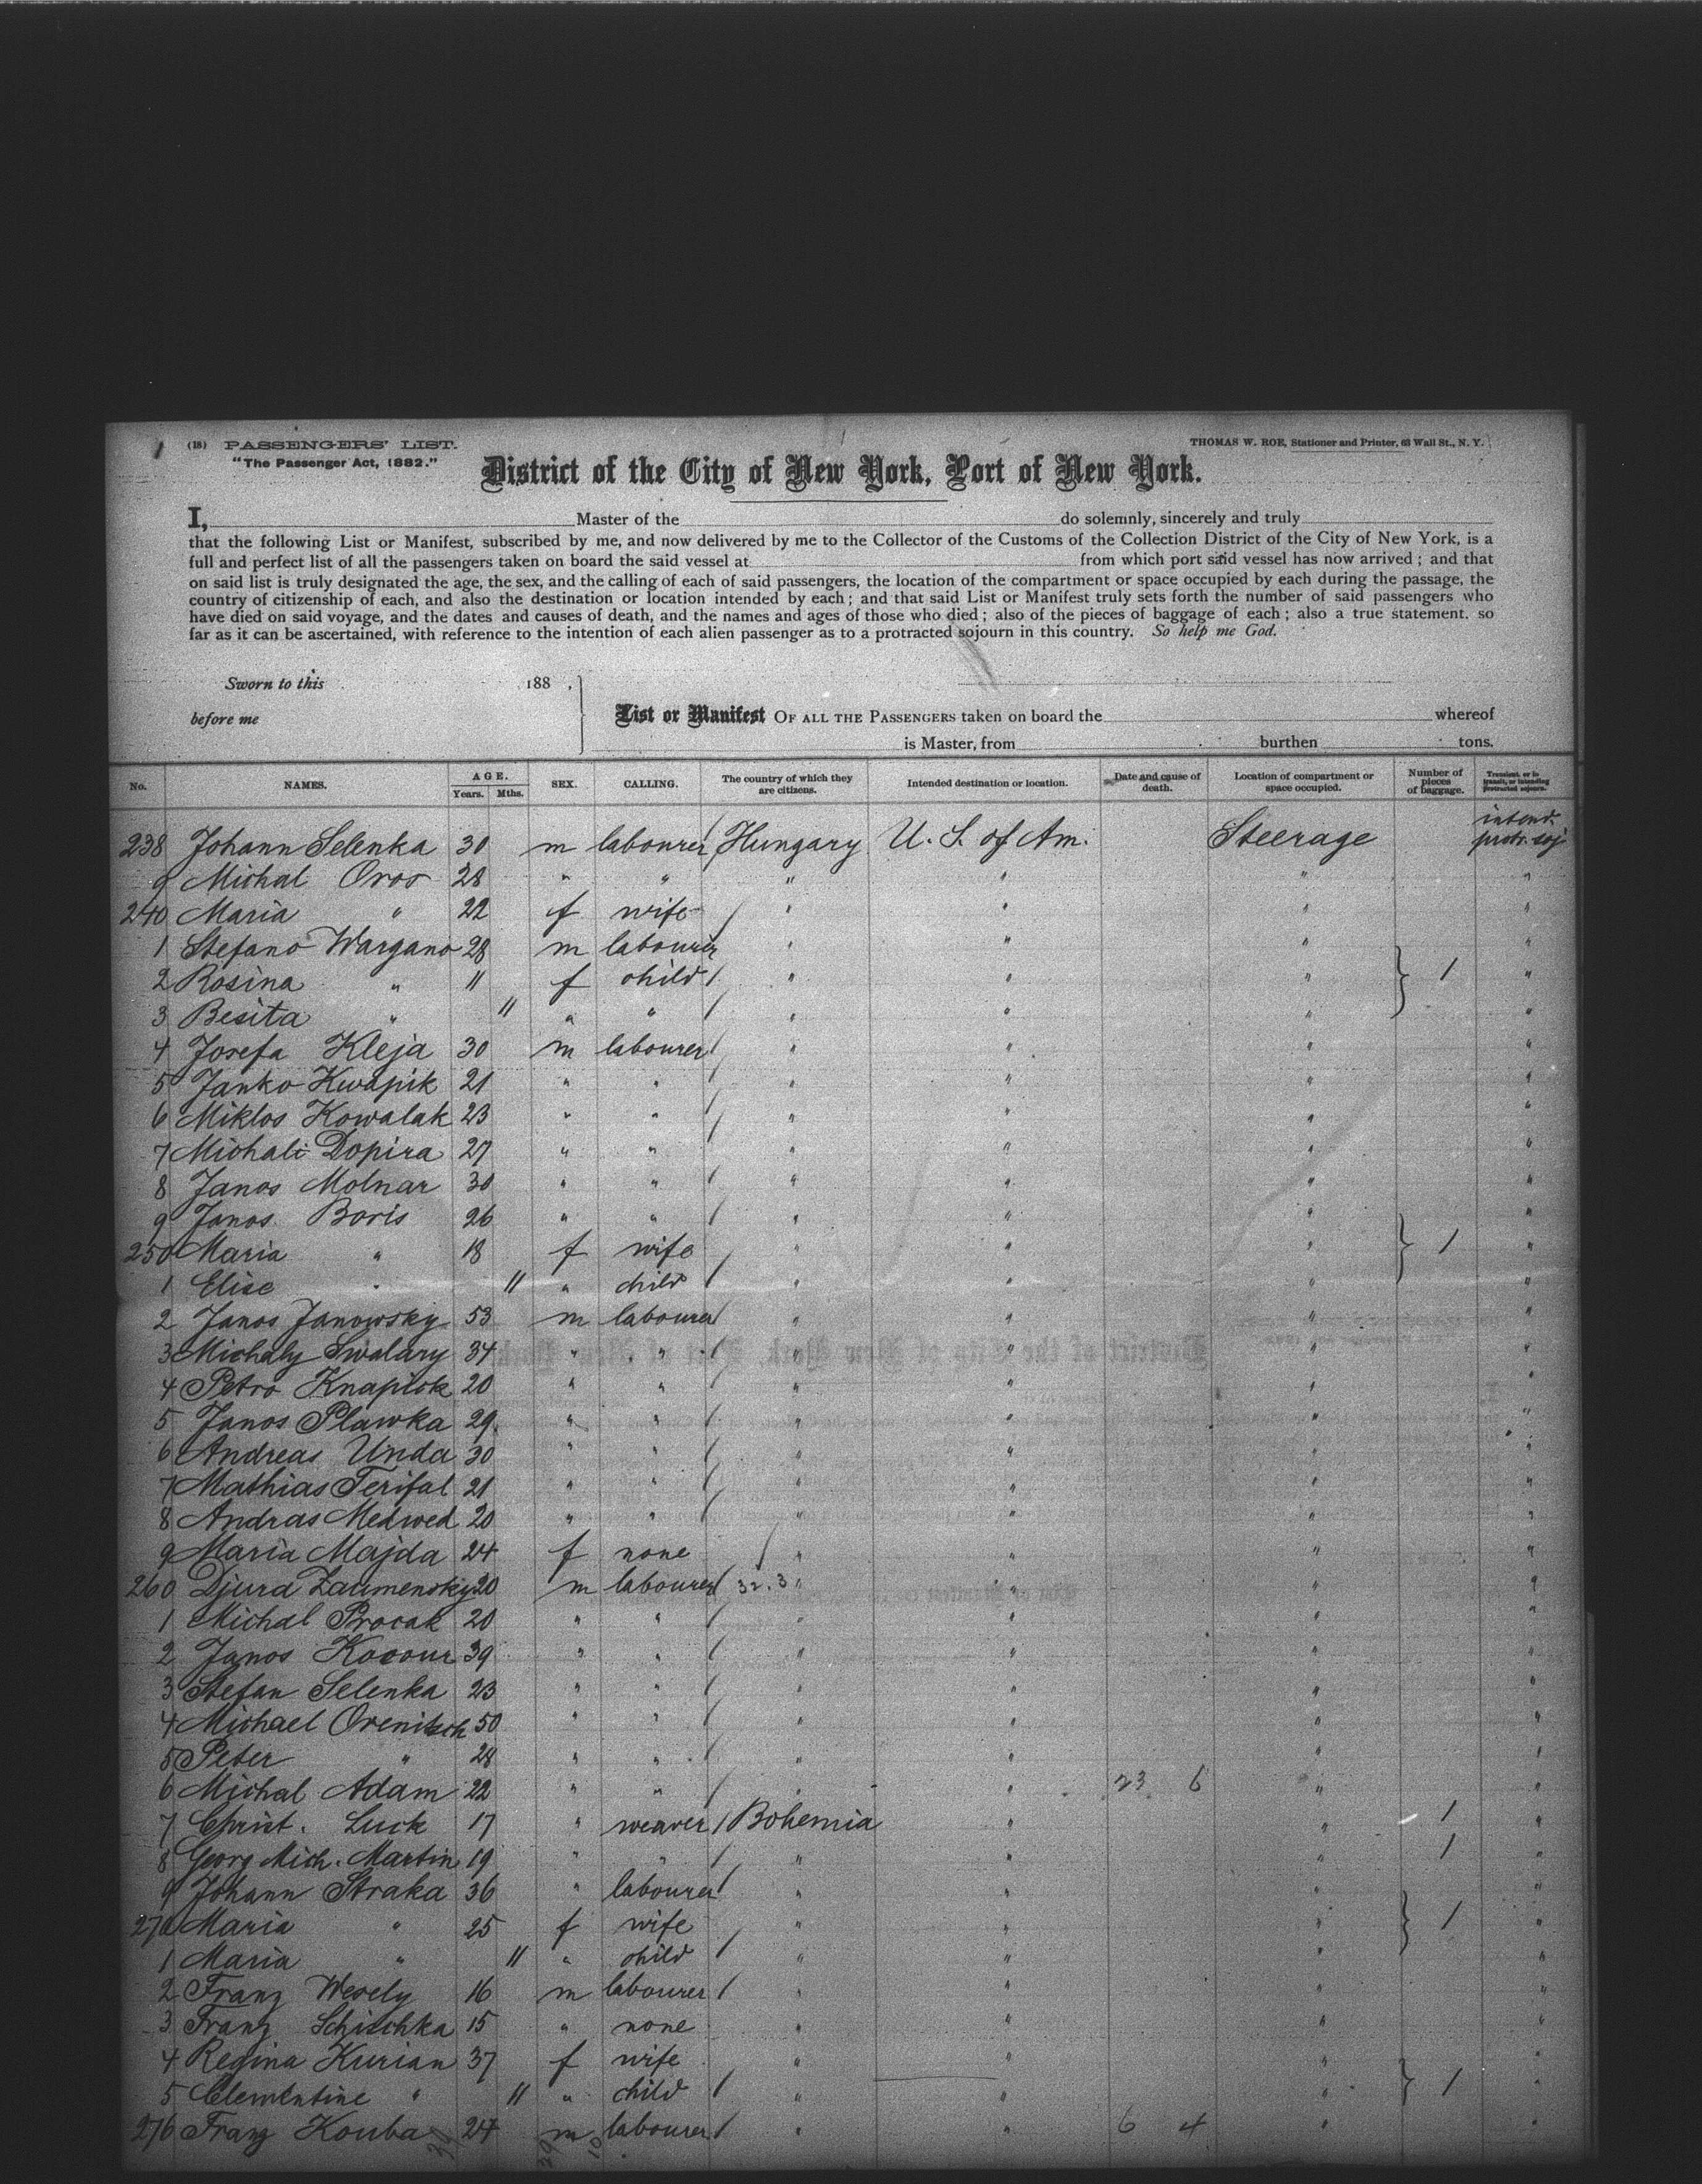 (18) PASSENGERS' LIST. THOMAS W. ROE, Stationer and Printer, 63 Wall St., N. Y.
"The Passenger Act, 1882."
District of the City of New York, Port of New York.
I, Master of the do solemnly, sincerely and truly
that the following List or Manifest, subscribed by me, and now delivered by me to the Collector of the Customs of the Collection District of the City of New York, is a
full and perfect list of all the passengers taken on board the said vessel at from which port said vessel has now arrived; and that
on said list is truly designated the age, the sex, and the calling of each of said passengers, the location of the compartment or space occupied by each during the passage, the
country of citizenship of each, and also the destination or location intended by each; and that said List or Manifest truly sets forth the number of said passengers who
have died on said voyage, and the dates and causes of death, and the names and ages of those who died; also of the pieces of baggage of each; also a true statement. so
far as it can be ascertained, with reference to the intention of each alien passenger as to a protracted sojourn in this country. So help me God.
Sworn to this 188 .
before me List or Manifest OF ALL THE PASSENGERS taken on board the whereof
is Master, from burthen tons.
No. NAMES. AGE. Years. Mths. SEX. CALLING. The country of which they are citizens. Intended destination or location. Date and cause of death. Location of compartment or space occupied. Number of pieces of baggage. Transient, or in transit, or intending protracted sojourn.
238 Johann Selenka 30 m labourer / Hungary U. S. of Am. Steerage intend. protr. soj
9 Michal Oros 28 " " " " " "
240 Maria " 22 f wife / " " " "
1 Stefano Wargano 28 m labourer " " " "
2 Rosina " 11 f child / " " " 1 "
3 Besita " 11 " " / " " " "
4 Josefa Kleja 30 m labourer / " " " "
5 Janko Kwapik 21 " " / " " " "
6 Miklos Kowalak 23 " " / " " " "
7 Michali Dopira 27 " " / " " " "
8 Janos Molnar 30 " " / " " " "
9 Janos Boris 26 " " / " " " "
250 Maria " 18 f wife / " " " 1 "
1 Elise " 11 " child / " " " "
2 Janos Janowsky 53 m labourer / " " " "
3 Michaly Swalary 34 " " / " " " "
4 Petro Knapick 20 " " / " " " "
5 Janos Plawka 29 " " / " " " "
6 Andreas Unda 30 " " / " " " "
7 Mathias Terifal 21 " " / " " " "
8 Andras Medwed 20 " " / " " " "
9 Maria Majda 24 f none / " " " "
260 Djura Zaumensky 20 m labourer / 32.3 " " " "
1 Michal Procak 20 " " / " " " "
2 Janos Kocour 39 " " / " " " "
3 Stefan Selenka 23 " " / " " " "
4 Michael Orenitsch 50 " " / " " " "
5 Peter " 28 " " / " " " "
6 Michal Adam 22 " " / " " 23 6 " "
7 Christ. Luck 17 " weaver / Bohemia " " 1 "
8 Georg Mich. Martin 19 " " / " " " 1 "
9 Johann Straka 36 " labourer / " " " "
270 Maria " 25 f wife " " " 1 "
1 Maria " 11 " child / " " " "
2 Franz Wesely 16 m labourer / " " " "
3 Franz Schischka 15 " none " " " "
4 Regina Kurian 37 f wife " " " "
5 Clementine " 11 " child / " " " 1 "
276 Franz Kouba 24 m labourer / " " 6 4 " "